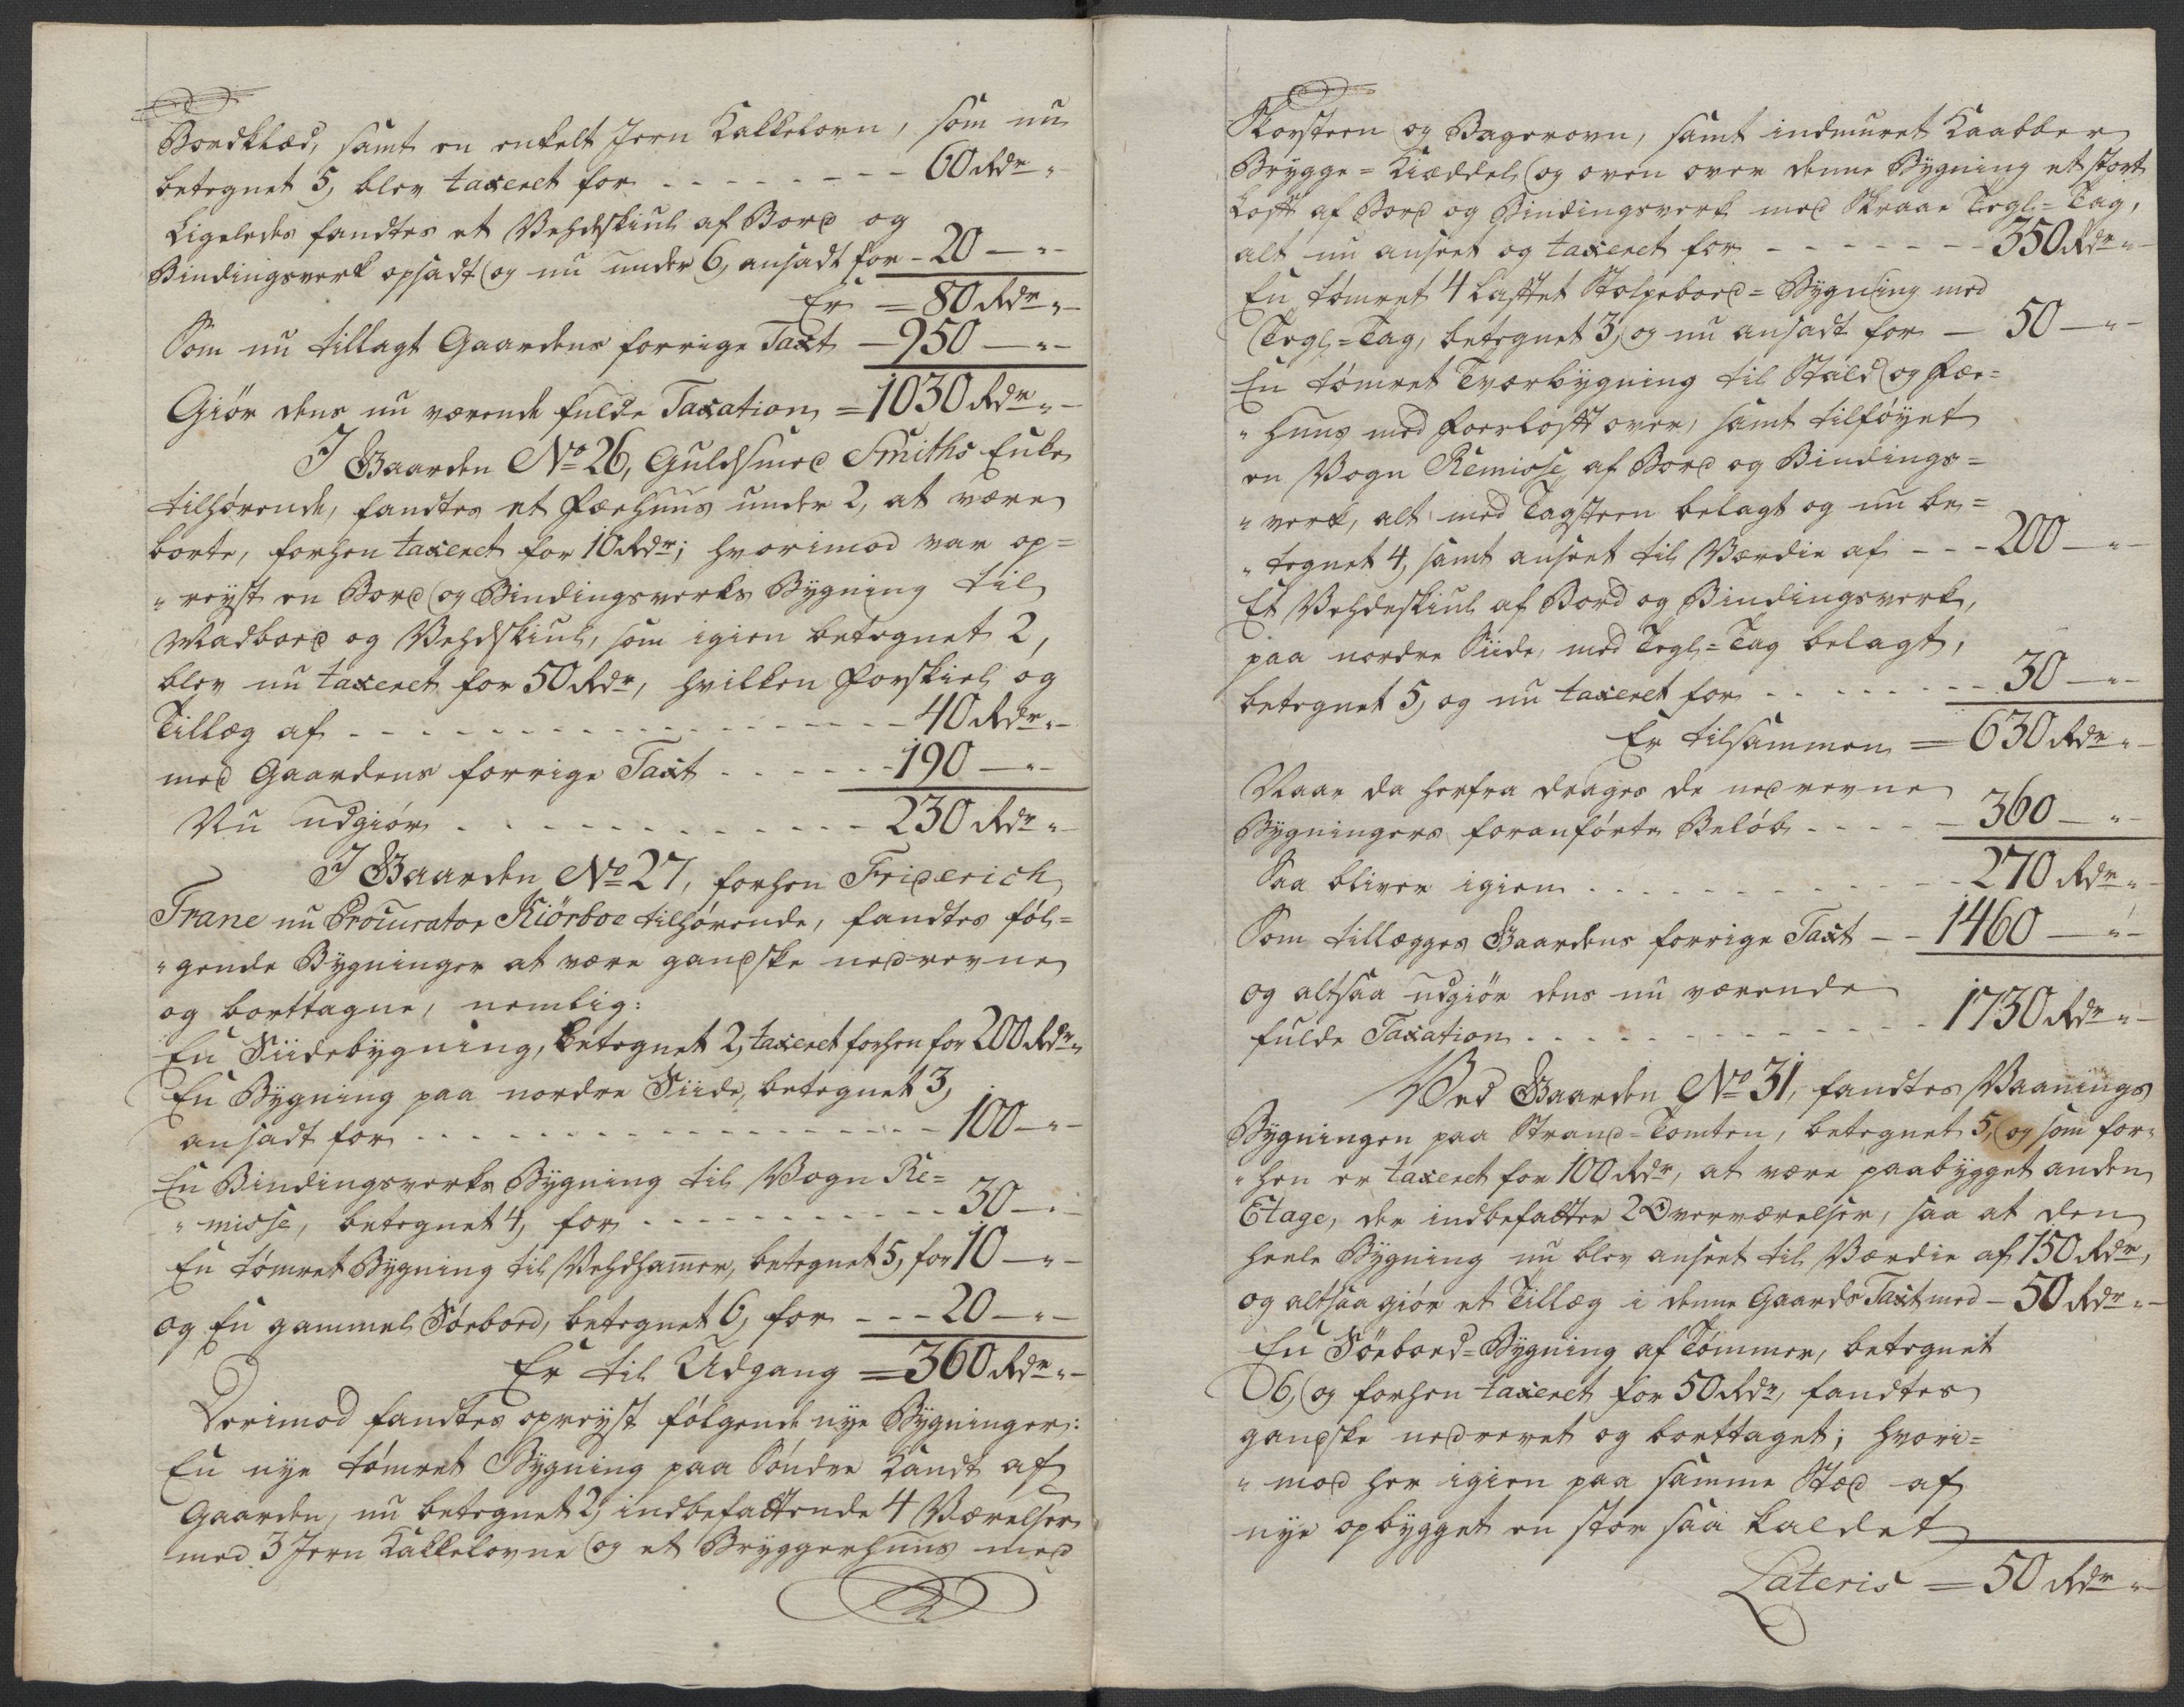 Bordklæd, samt en enkelt Jern Kakkelovn, som nu
betegnet 5, blev taxeret for - - - - - - - - - 60 Rdr „-
Ligeledes fandtes et Vehdskiul af Bord og
Bindingsverk opsadt og nu under 6, ansadt for - 20 — „-
Er = 80 Rdr „-
Som nu tillagt Gaardens forrige Taxt — 950 — „-
Giör dens nu værende fulde Taxation = 1030 Rdr „-
I Gaarden No 26, Guldsmed Smiths Enke
tilhörende, fandtes et Fæehuus under 2, at være
borte, forhen taxeret for 10 Rdr; hvorimod var op=
„reyst en Bord og Bindingsverks Bygning til
Madbord og Vehdskiul, som igien betegnet 2,
blev nu taxeret for 50 Rdr, hvilken Forskiel og
Tillæg af - - - - - - - - - - - - - - 40 Rdr „-
med Gaardens forrige Taxt - - - - - - 190 — „-
Nu udgiör - - - - - - - - - - - - 230 Rdr „-
I Gaarden No 27, forhen Friderich
Trane nu Procurator Kiörboe tilhörende, fandtes föl=
„gende Bygninger at være gandske nedrevne
og borttagne, nemlig:
En Siidebygning, betegnet 2, taxeret forhen for 200 Rdr „
En Bygning paa nordre Siide, betegnet 3,
ansadt for - - - - - - - - - - - - - - 100 — „-
En Bindingsverks Bygning til Vogn Re=
„misse, betegnet 4, for - - - - - - - - - - 30 — „-
En tömret Bygning til Vehdhamer, betegnet 5, for 10 — „-
og En gammel Söebord, betegnet 6, for - - - 20 — „-
Er til Udgang = 360 Rdr „-
Derimod fandtes opreyst fölgende nye Bygninger:
En nye tömret Bygning paa Söndre Kandt af
Gaarden, nu betegnet 2, indbefattende 4 Værelser
med 3 Jern Kakkelovne og et Bryggerhuus med
Skorsteen og Bagerovn, samt indmuret Kaabber
Brygge=Kiæddel, og oven over denne Bygning et stort
Loft af Bord og Bindingsverk med Skraae Tegl=Tag,
alt nu anseet og taxeret for - - - - - - - 350 Rdr „-
En tömret 4 Laftet Stolpebord=Bygning med
Tegl=Tag, betegnet 3, og nu ansadt for — 50 — „-
En tömret Tverbygning til Stald og Fæe=
„huus med Foerloft over, samt tilföyet
en Vogn Remisse af Bord og Bindings=
„verk, alt med Tagsteen belagt og nu be=
„tegnet 4, samt anseet til Værdie af - - - 200 — „-
Et Vehdeskiul af Bord og Bindingsverk,
paa nordre Siide, med Tegl=Tag belagt,
betegnet 5, og nu taxeret for - - - - - - - - 30 — „-
Er tilsammen = 630 Rdr „-
Naar da herfra drages de nedrevne
Bygningers foranförte Belöb - - - - - 360 — „-
Saa bliver igien - - - - - - - - - - - - 270 Rdr „-
Som tillægges Gaardens forrige Taxt - - 1460 — „-
og altsaa udgiör dens nu værende
fulde Taxation - - - - - - - - - - - - 1730 Rdr „-
Ved Gaarden No 31, fandtes Vaanings
Bygningen paa Strand=Tomten, betegnet 5, og som for„
„hen er taxeret for 100 Rdr, at være paabygget anden
Etage, der indbefatter 2 Overværelser, saa at den
heele Bygning nu blev anseet til Værdie af 150 Rdr,
og altsaa giör et Tillæg i denne Gaards Taxt med - 50 Rdr „-
En Söebord=Bygning af Tömmer, betegnet
6, og forhen taxeret for 50 Rdr, fandtes
gandske nedrevet og borttaget; hvori=
„mod her igien paa samme Stæd af
nye opbygget en stor saa kaldet
Lateris = 50 Rdr „-